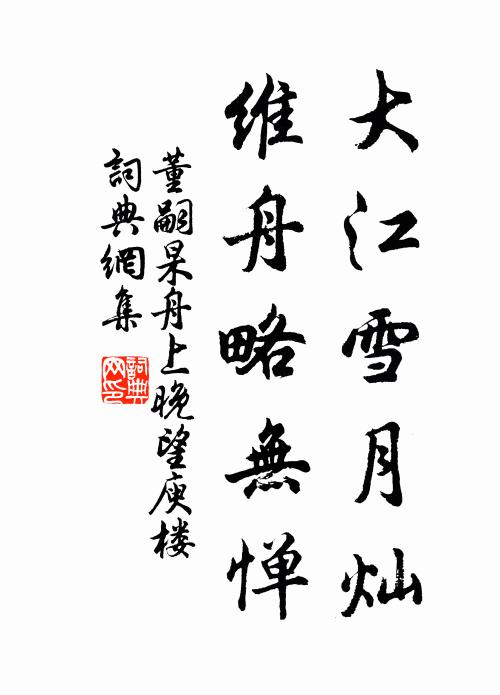 大江雪月灿
維舟略無惮
董嗣杲舟上晚望庾楼
詞典網集
詞典网印